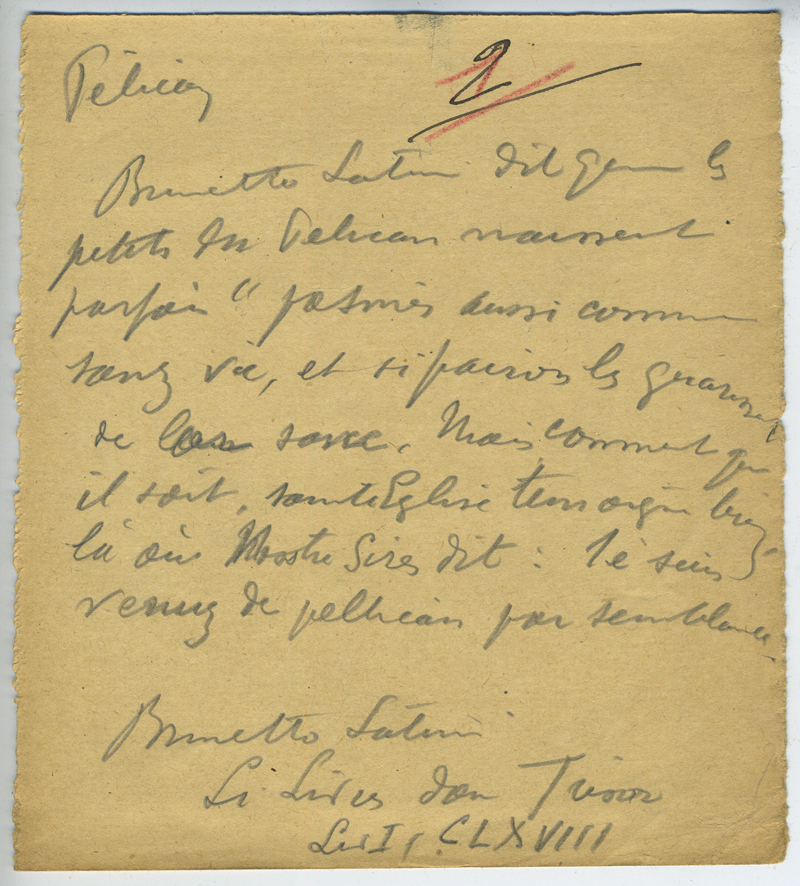 Pélican
2
Brunetto Latini dit que les
petits du Pélican naissent
parfois "pasmés aussi comme
sanz vie, et si pairon les
de lor sanc. Mais comment que
il soit, sainte Eglise tesmoigne bien
là où Nostre Sires dit : Je suis
venuz de pellican par semblance.
Brunetto Latini
Li Livres dou Tresor
Liv I, CLXVIII